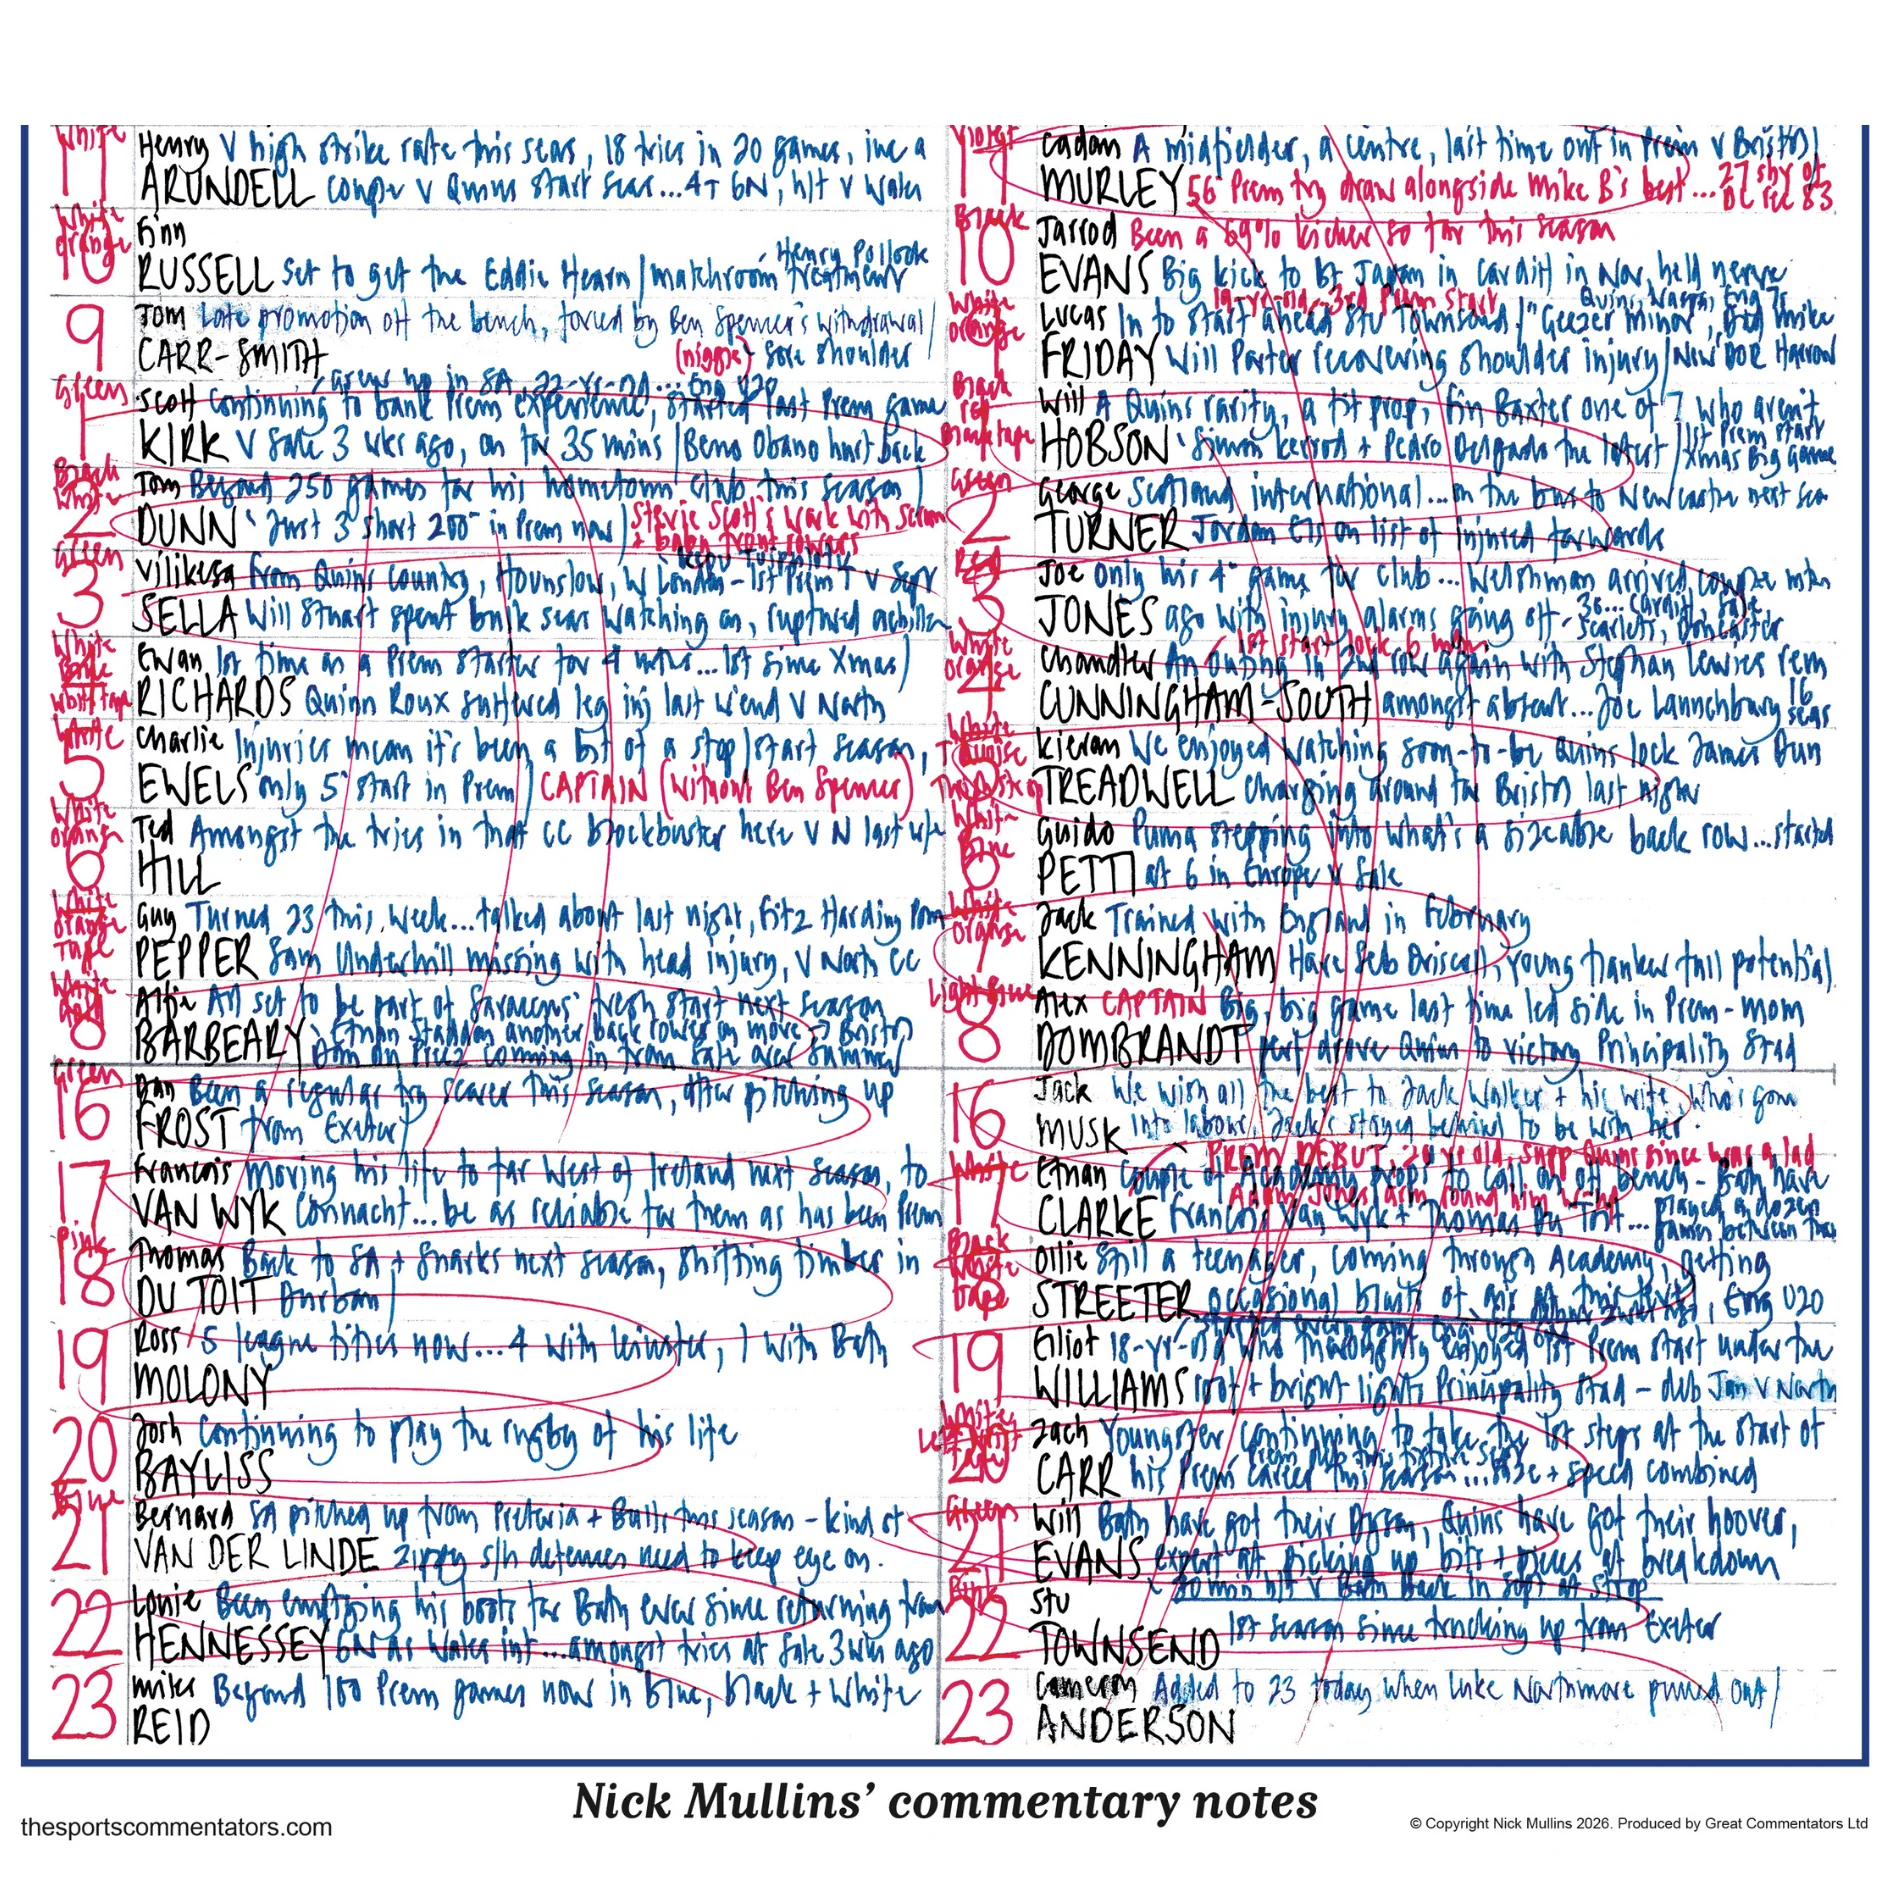 White
11
Henry V high strike rate this seas, 18 tries in 20 games, inc a
ARUNDELL couple v Quins start seas...4T 6N, h/t v Wales
White
orange
10
Finn
Henry Pollock
RUSSELL Set to get the Eddie Hearn/matchroom treatment
9
Tom Late promotion off the bench, forced by Ben Spencer's withdrawal/
CARR-SMITH (niggle) sore shoulder
Green
1
grew up in SA, 22-yr-old... Eng U20
Scott Continuing to bank Prem experience, started last Prem game
KIRK V Sale 3 wks ago, on for 35 mins/Beno Obano hurt back
Black
White
2
Tom Beyond 250 games for his hometown club this season/
DUNN Just 3 short 200 in Prem now/Stevie Scott's work with scrum
+ Bath front rowers
Green
3
Vilikesa From Quins country, Hounslow, W London - 1st Prem T v Sar
SELLA Will Stuart spent bulk seas watching on, ruptured achilles
White
4
Ewan 1st time as a Prem starter for 4 mths...1st since Xmas/
RICHARDS Quinn Roux suffered leg inj last w'end v North
White
5
Charlie Injuries mean it's been a bit of a stop/start season,
EWELS only 5 start in Prem/CAPTAIN (without Ben Spencer)
White
orange
6
Ted Amongst the tries in that CC blockbuster here V N last
HILL
White
orange
Tape
Guy Turned 23 this week...talked about last night, Fitz Harding
PEPPER Sam Underhill missing with head injury, v North CC
White
8
Alfie All set to be part of Saracens' fresh start next season
BARBEARY Ethan Staddon another back rower on move -> Bristol
coming in from Sale over summer
Green
16
Dan Been a regular try scorer this season, after pitching up
FROST from Exeter/
17
Francois Moving his life to far West of Ireland next season, to
VAN WYK Connacht...be as reliable for them as has been Prem
Pink
18
Thomas Back to SA + Sharks next season, shifting timber in
DU TOIT Durban/
19
Ross 5 league titles now...4 with Leinster, 1 with Bath
MOLONY
20
Josh Continuing to play the rugby of his life
BAYLISS
Blue
21
Bernard SA pitched up from Pretoria + Bulls this season - kind of
VAN DER LINDE zippy s/h defences need to keep eye on.
22
Louie Been emptying his boots for Bath ever since returning from
HENNESSEY 6N as Wales int...amongst tries at Sale 3 wks ago
23
Miles Beyond 100 Prem games now in blue, black + white
REID
Violet
11
Cadan A midfielder, a centre, last time out in Prem v Bristol/
MURLEY 56 Prem try draw alongside Mike B's best...27 shy of
DC rec 83
Black
10
Jarrod Been a 69% kicker so far this season
EVANS Big kick to bt Japan in Cardiff in Nov, held nerve
White
orange
19-yr-old, 3rd Prem start
Quins, Wasps, Eng 7s
Lucas In to start ahead Stu Townsend/"Geezer Minor", Dad Mike
FRIDAY Will Porter recovering shoulder injury/New DOR Harrow
Black
red
Black tape
Will A Quins rarity, a fit prop, Fin Baxter one of 7 who aren't
HOBSON Simon Kerrod + Pedro Delgado the latest/1st Prem start
Xmas Big Game
Green
2
George Scotland international...on the bus to Newcastle next sea
TURNER Jordan Els on list of injured forwards
Red
3
Joe Only his 4 game for club...Welshman arrived couple mths
JONES ago with injury alarms going off - 36...Cardiff, Sale
Scarlets, Doncaster
White
orange
4
1st start lock 6 mths
Chandler An outing in 2nd row again with Stephan Lewies rem
CUNNINGHAM-SOUTH amongst absent...Joe Launchbury 16
seas
White
Kieran We enjoyed watching soon-to-be Quins lock James Dun
TREADWELL charging around for Bristol last night
White
Blue
6
Guido Puma stepping into what's a sizeable back row...started
PETTI at 6 in Europe v Sale
White
orange
7
Jack Trained with England in February
KENNINGHAM Have Seb Driscoll, young flanker full potential/
Light Blue
8
Alex CAPTAIN Big, big game last time led side in Prem - mom
DOMBRANDT perf drove Quins to victory Principality Stad
16
Jack We wish all the best to Jack Walker + his wife, who's gone
MUSK into labour, Jack's stayed behind to be with her.
White
17
PREM DEBUT, 20 yr old, supp Quins since was a lad
Ethan Couple of Academy props to call on off bench - Bath have
Adam Jones found him
CLARKE Francois Van Wyk + Thomas Du Toit...played a dozen
games between them
Black
White
Tape
18
Ollie Still a teenager, coming through Academy, getting
STREETER occasional blasts of air at this level, Eng U20
19
Elliot 18-yr-old who thoroughly enjoyed 1st Prem start under the
WILLIAMS roof + bright lights Principality Stad - deb Jan v North
20
Zach Youngster continuing to take the 1st steps at the start of
CARR his Prem career this season...size + speed combined
Green
21
Will Bath have got their Dyson, Quins have got their hoover,
EVANS expert at picking up bits + pieces at breakdown
30 min h/t v Bath back in Sept at Stoop
22
Stu
TOWNSEND 1st season since trucking up from Exeter
23
Cameron Added to 23 today when Luke Northmore pulled out/
ANDERSON
Nick Mullins' commentary notes
thesportscommentators.com
© Copyright Nick Mullins 2026. Produced by Great Commentators Ltd